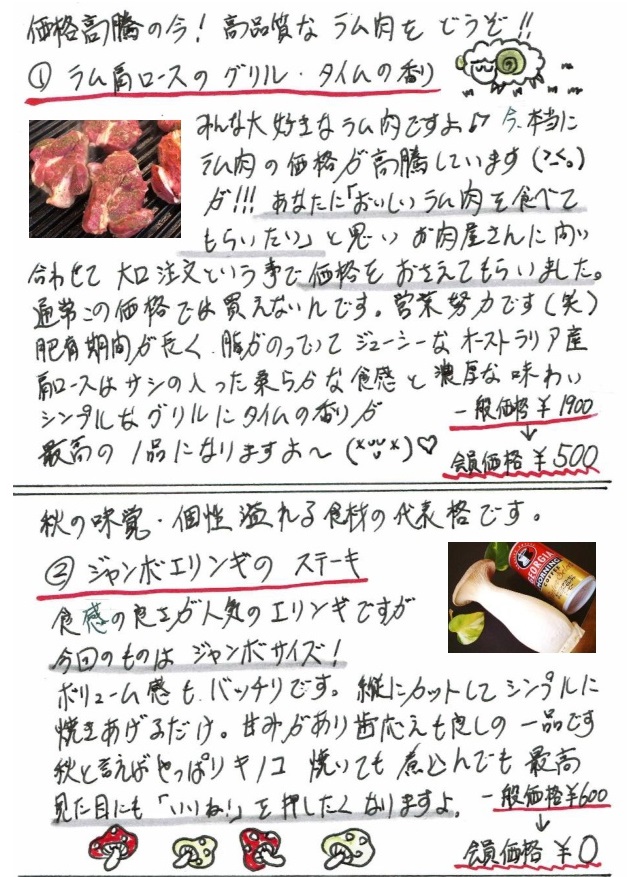 価格高騰の今！高品質な ラム肉を どうぞ!!
① ラム肩ロースの グリル・タイムの香り
みんな大好きなラム肉ですよ♪ 今、本当に
ラム肉の価格が高騰しています (>_<。)
が!!! あなたに「おいしいラム肉を食べて
もらいたい」と思い お肉屋さんに問い
合わせて 大口注文という事で価格を おさえてもらいました。
通常この価格では買えないんです。営業努力です(笑)
肥育期間が長く、脂がのっていて ジューシーなオーストラリア産
肩ロースはサシの入った柔らかな食感と濃厚な味わい
シンプルなグリルにタイムの香りが
最高の1品になりますよ〜 (×ᴗ×)♡
一般価格￥1900
↓
会員価格￥500
秋の味覚・個性溢れる食材の代表格です。
② ジャンボエリンギの ステーキ
食感の良さが人気のエリンギですが
今回のものは ジャンボサイズ！
ボリューム感もバッチリです。縦にカットしてシンプルに
焼きあげるだけ。甘みがあり歯応えも良しの一品です
秋と言えばやっぱりキノコ 焼いても煮込んでも最高
見た目にも「いいね！」を押したくなりますよ。
一般価格￥600
↓
会員価格￥0
GEORGIA
MORNING
COFFEE